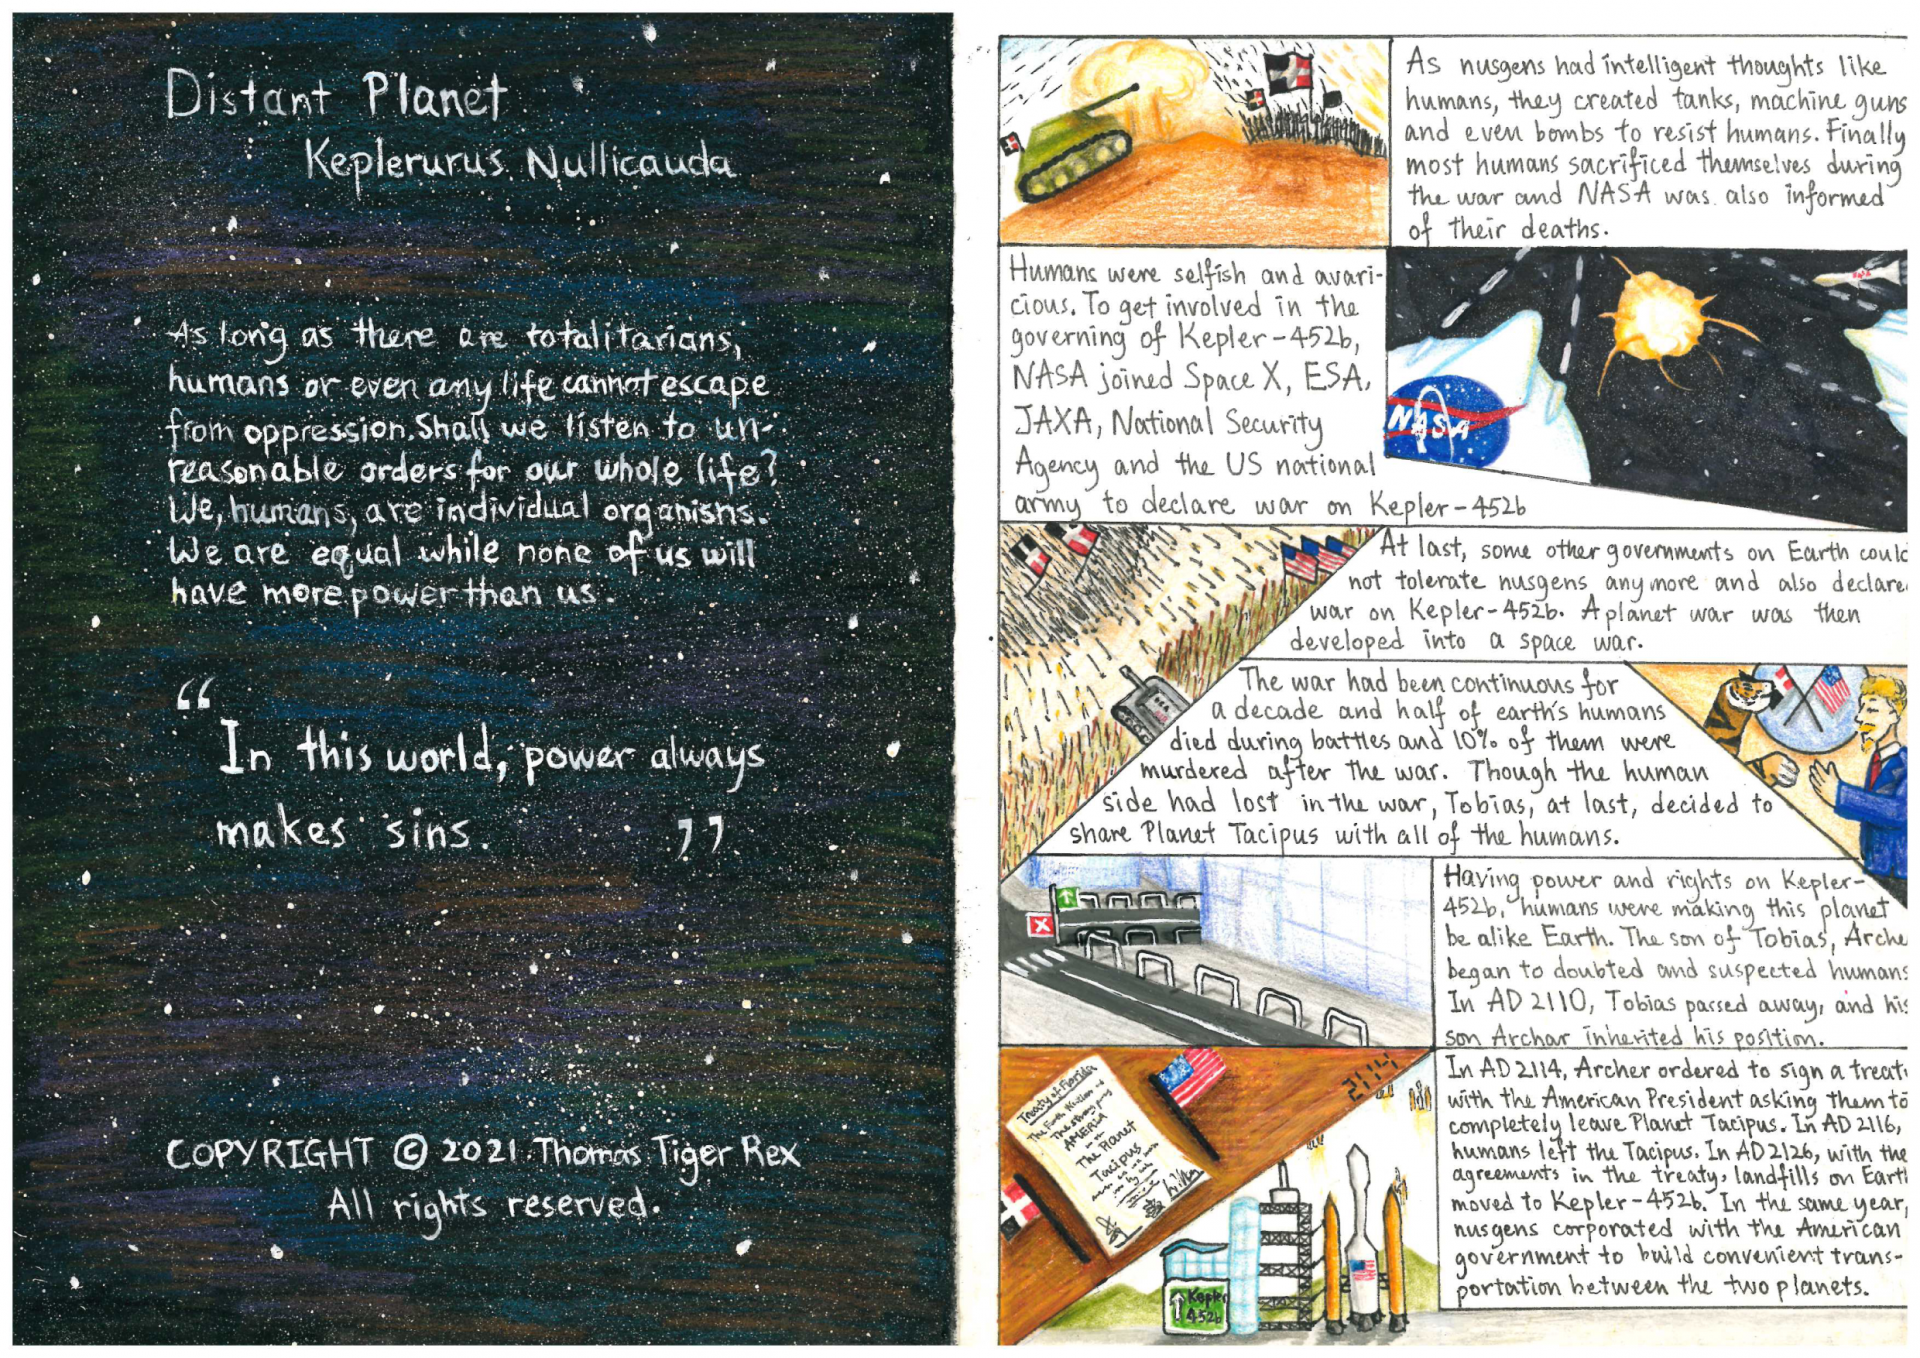 Distant Planet
Keplerurus Nullicauda
As long as there are totalitarians,
humans or even any life cannot escape
from oppression. Shall we listen to un-
reasonable orders for our whole life?
We, humans, are individual organisms.
We are equal while none of us will
have more power than us.
“
In this world, power always
makes sins.
”
COPYRIGHT © 2021 Thomas Tiger Rex
All rights reserved.
As nusgens had intelligent thoughts like
humans, they created tanks, machine guns
and even bombs to resist humans. Finally
most humans sacrificed themselves during
the war and NASA was also informed
of their deaths.
Humans were selfish and avari-
cious. To get involved in the
governing of Kepler-452b,
NASA joined Space X, ESA,
JAXA, National Security
Agency and the US national
army to declare war on Kepler-452b
NASA
At last, some other governments on Earth could
not tolerate nusgens anymore and also declare
war on Kepler-452b. A planet war was then
developed into a space war.
The war had been continuous for
a decade and half of earth's humans
died during battles and 10% of them were
murdered after the war. Though the human
side had lost in the war, Tobias, at last, decided to
share Planet Tacipus with all of the humans.
Having power and rights on Kepler-
452b, humans were making this planet
be alike Earth. The son of Tobias, Arche
began to doubted and suspected humans
In AD 2110, Tobias passed away, and his
son Archar inherited his position.
Treaty of Florida
AMERICA
The Planet
Tacipus
2114
Kepler
452b
In AD 2114, Archer ordered to sign a treat
with the American President asking them to
completely leave Planet Tacipus. In AD 2116,
humans left the Tacipus. In AD 2126, with the
agreements in the treaty, landfills on Earth
moved to Kepler-452b. In the same year,
nusgens corporated with the American
government to build convenient trans-
portation between the two planets.